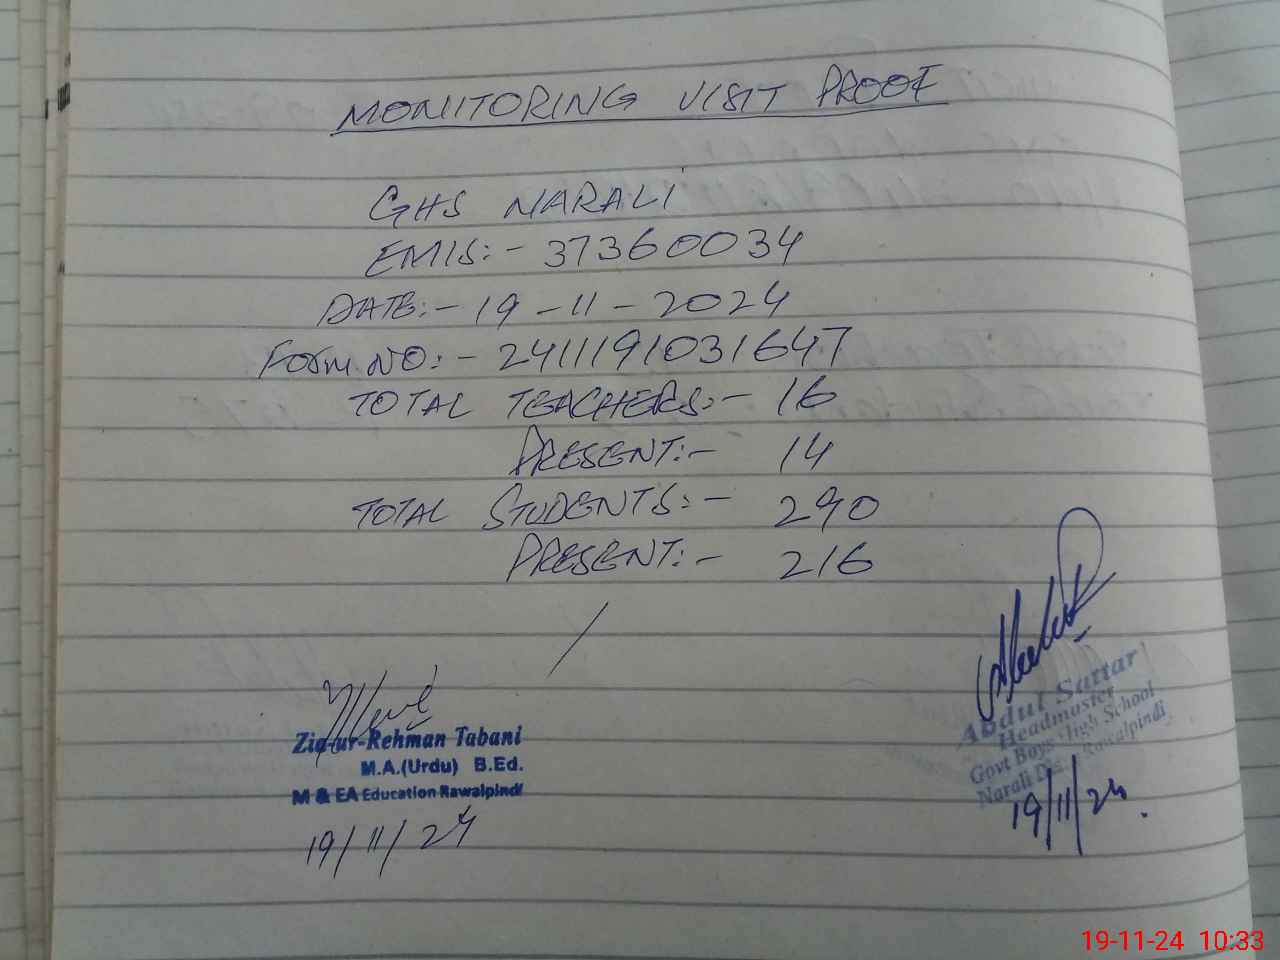 MONITORING VISIT PROOF
GHS NARALI
EMIS:- 37360034
DATE:- 19-11-2024
Form NO:- 2411191031647
TOTAL TEACHERS:- 16
PRESENT:- 14
TOTAL STUDENTS:- 290
PRESENT:- 216
Zia-ur-Rehman Tabani
M.A.(Urdu) B.Ed.
M & EA Education Rawalpindi
19/11/24
Abdul Sattar
Headmaster
Govt Boys High School
Narali Dis. Rawalpindi
19/11/24.
19-11-24 10:33